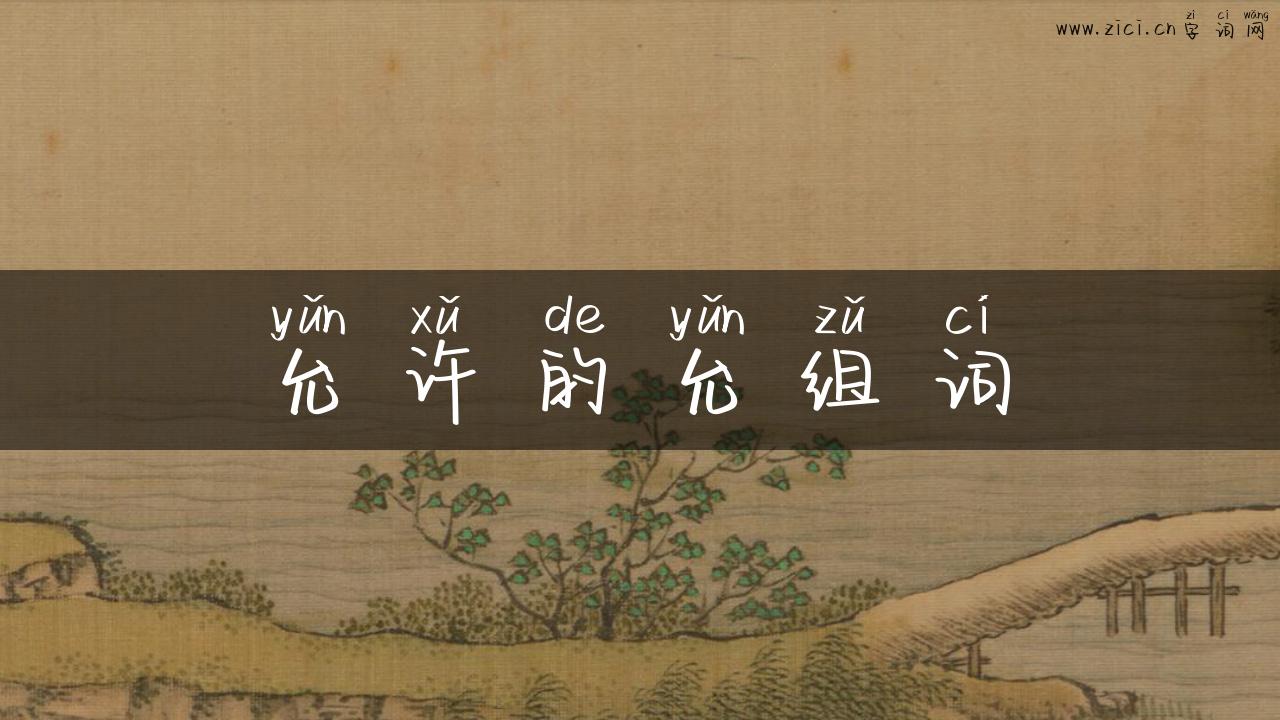 www.zici.cn zì cí wǎng
字词网
yǔn xǔ de yǔn zǔ cí
允许的允组词